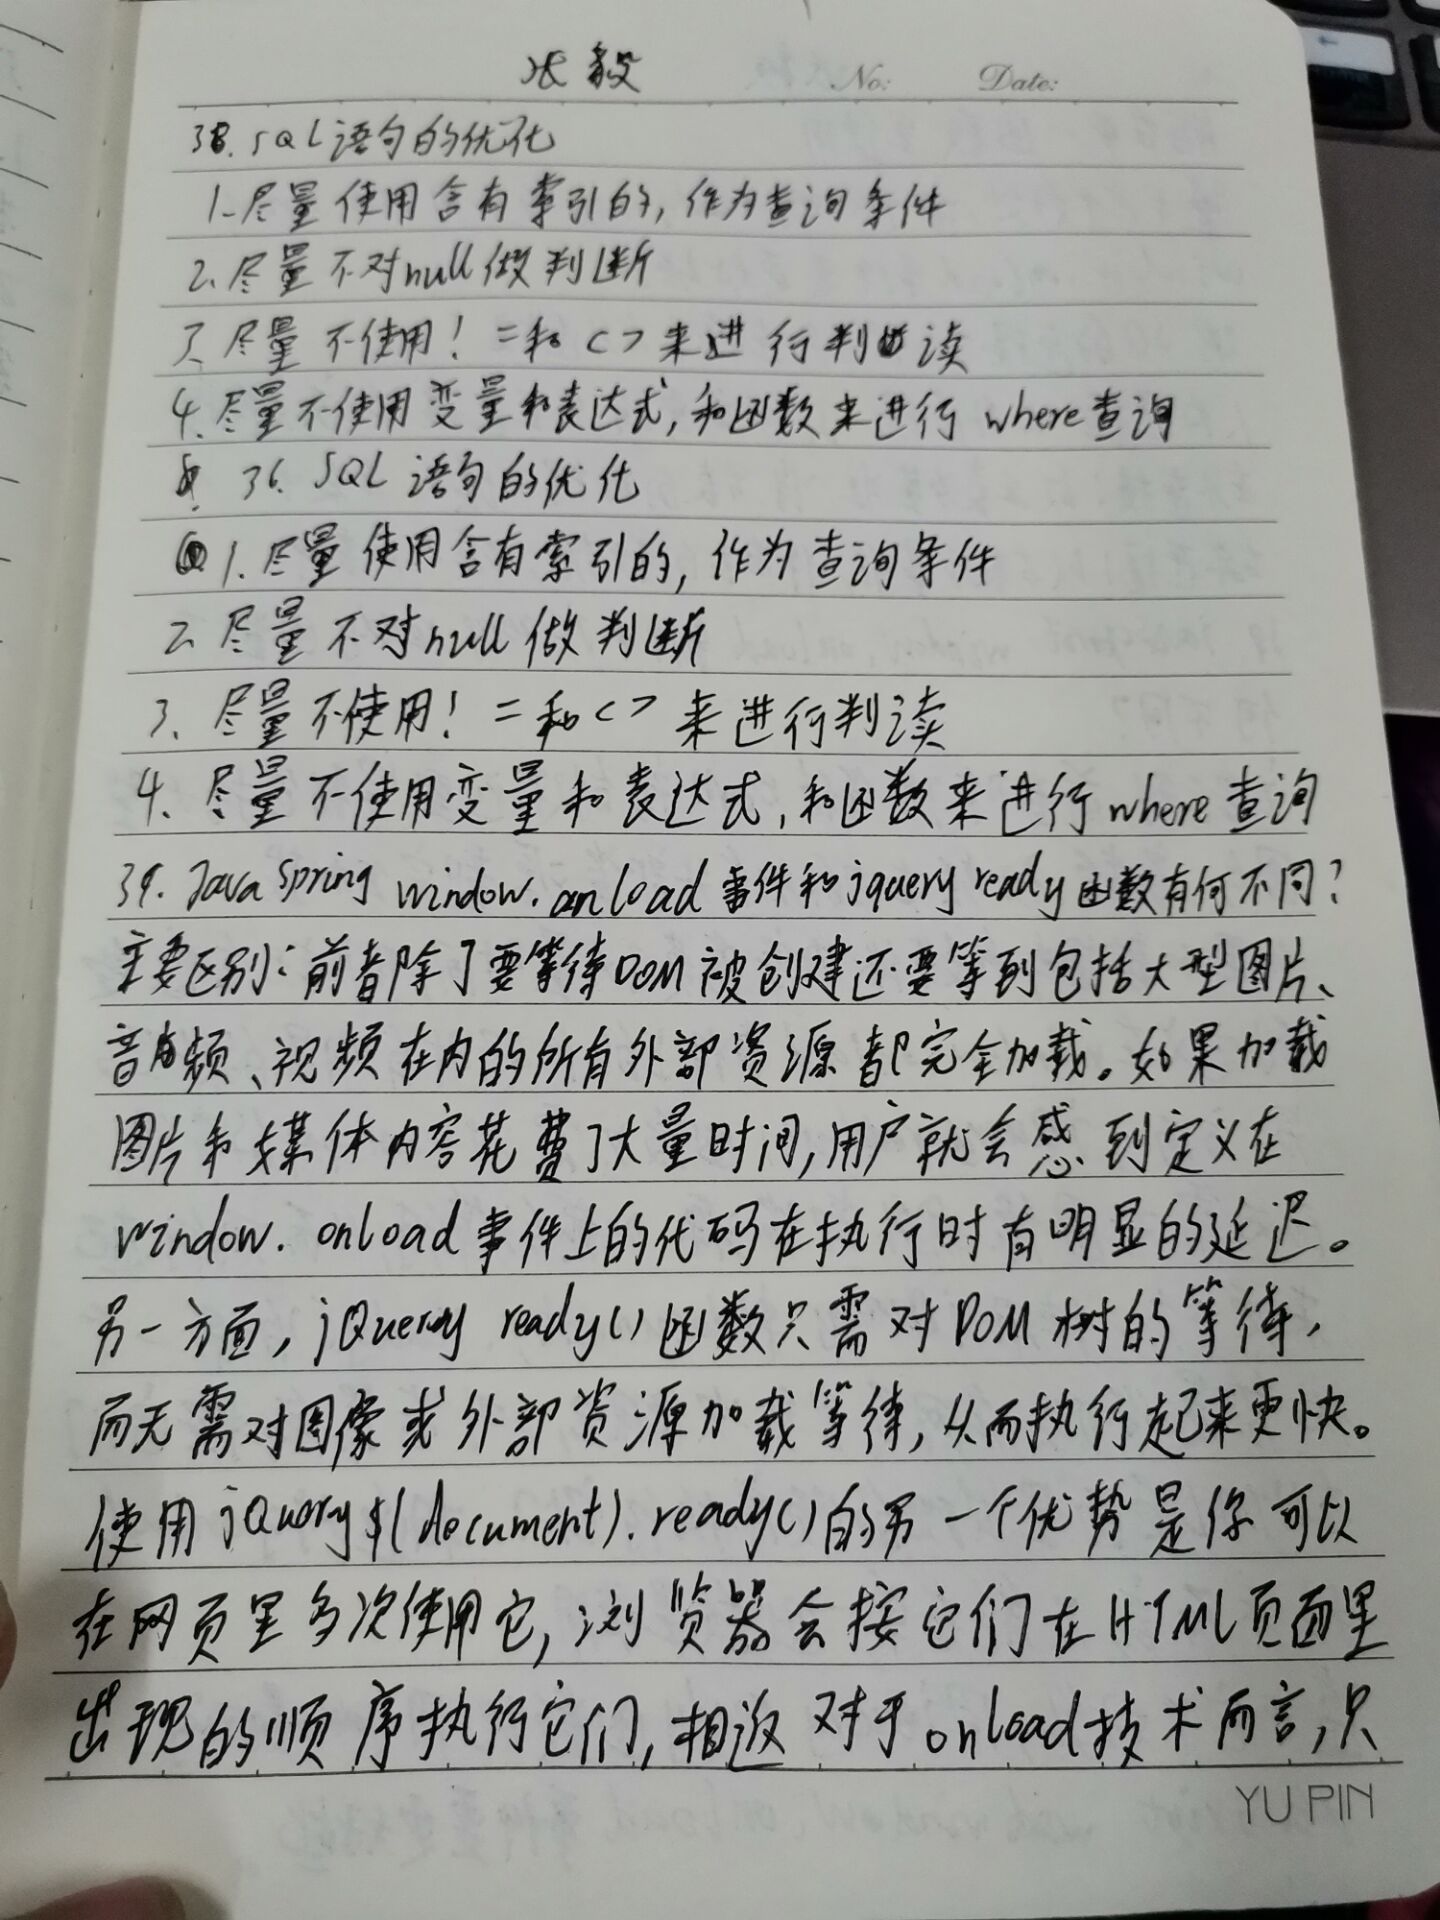 张毅 No: Date:
38. SQL语句的优化
1.尽量使用含有索引的,作为查询条件
2.尽量不对null做判断
3.尽量不使用!=和<>来进行判读
4.尽量不使用变量和表达式,和函数来进行where查询
36. SQL语句的优化
1.尽量使用含有索引的,作为查询条件
2.尽量不对null做判断
3.尽量不使用!=和<>来进行判读
4.尽量不使用变量和表达式,和函数来进行where查询
39. Java Spring window.onload事件和jquery ready函数有何不同?
主要区别:前者除了要等待DOM被创建还要等到包括大型图片、
音频、视频在内的所有外部资源都完全加载。如果加载
图片和媒体内容花费了大量时间,用户就会感到定义在
window.onload事件上的代码在执行时有明显的延迟。
另一方面,jQuery ready()函数只需对DOM树的等待,
而无需对图像或外部资源加载等待,从而执行起来更快。
使用jQuery $(document).ready()的另一个优势是你可以
在网页里多次使用它,浏览器会按它们在HTML页面里
出现的顺序执行它们,相返对于onload技术而言,只
YU PIN